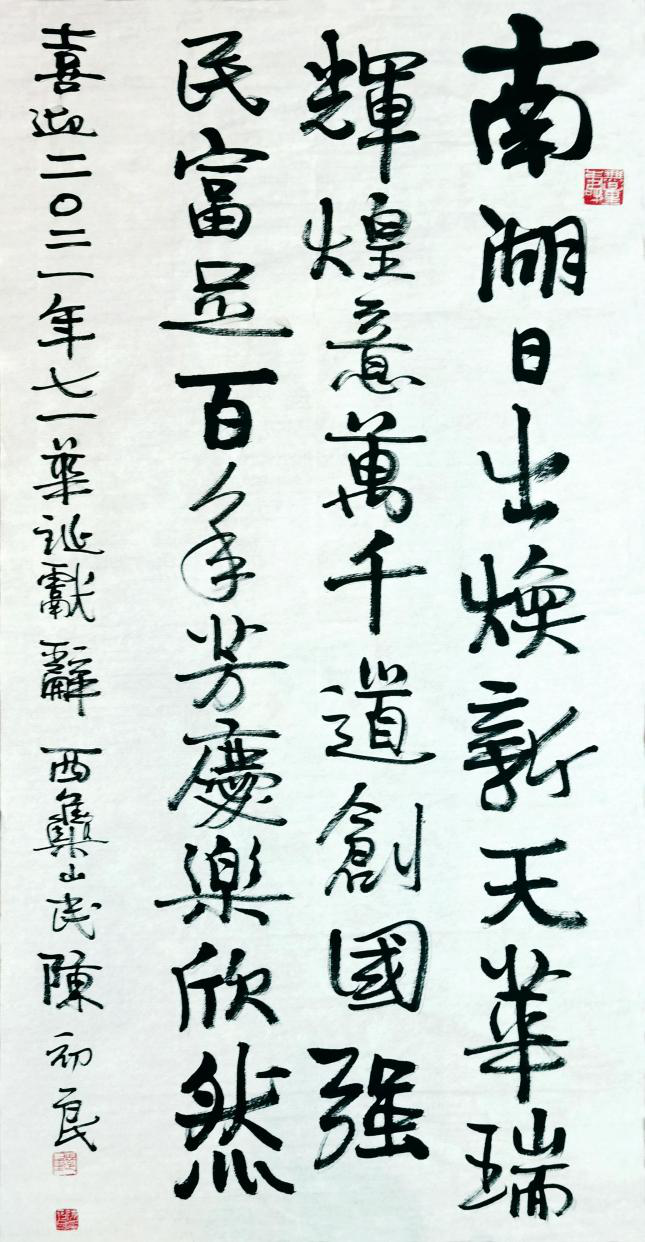 南湖日出焕新天華瑞
輝煌意萬千道創國强
民富足百年芳慶樂欣然
喜迎二〇二一年七一華诞獻辭 西樵山民陳初良